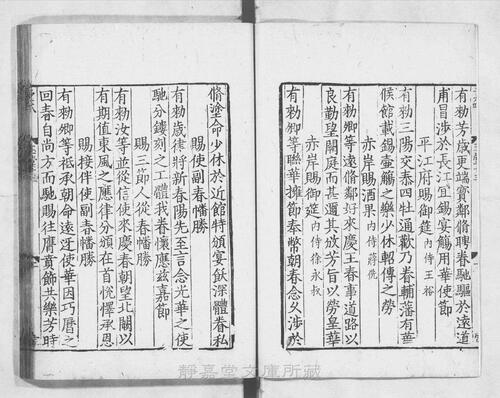 有勑芳歲更端寳鄰脩聘眷馳驅於遠道
甫冒涉於長江宜錫宴觴用華使節
平江府賜御筵内侍王裕
有勑三陽交泰四牡逋歡乃眷輔藩有華
候館載錫壷觴之樂少休軺傳之勞
赤岸賜酒果内侍蔣㑺
有勑卿等遠脩鄰好來慶王春事道路以
良勤望闕庭而甚邇其欲芳旨以勞皇華
赤岸賜御筵内侍徐永叔
有勑卿等聯華擁節奉幣朝春念乂涉於
脩塗命少休於近館特頒宴飲深體眷私
賜使副春幡勝
有勑歲律將新春陽先至言念光華之使
馳分鏤刻之工體我眷懷應兹嘉節
賜三節人從春幡勝
有勑汝等並從信使來慶春朝望北闕以
有期值東風之應律分頒在首恱懌承恩
賜接伴使副春幡勝
有勑卿等祗承朝命遠迓使華因巧曆之
回春自尚方而馳賜往膺賁飾共樂芳時
靜嘉堂文庫所藏